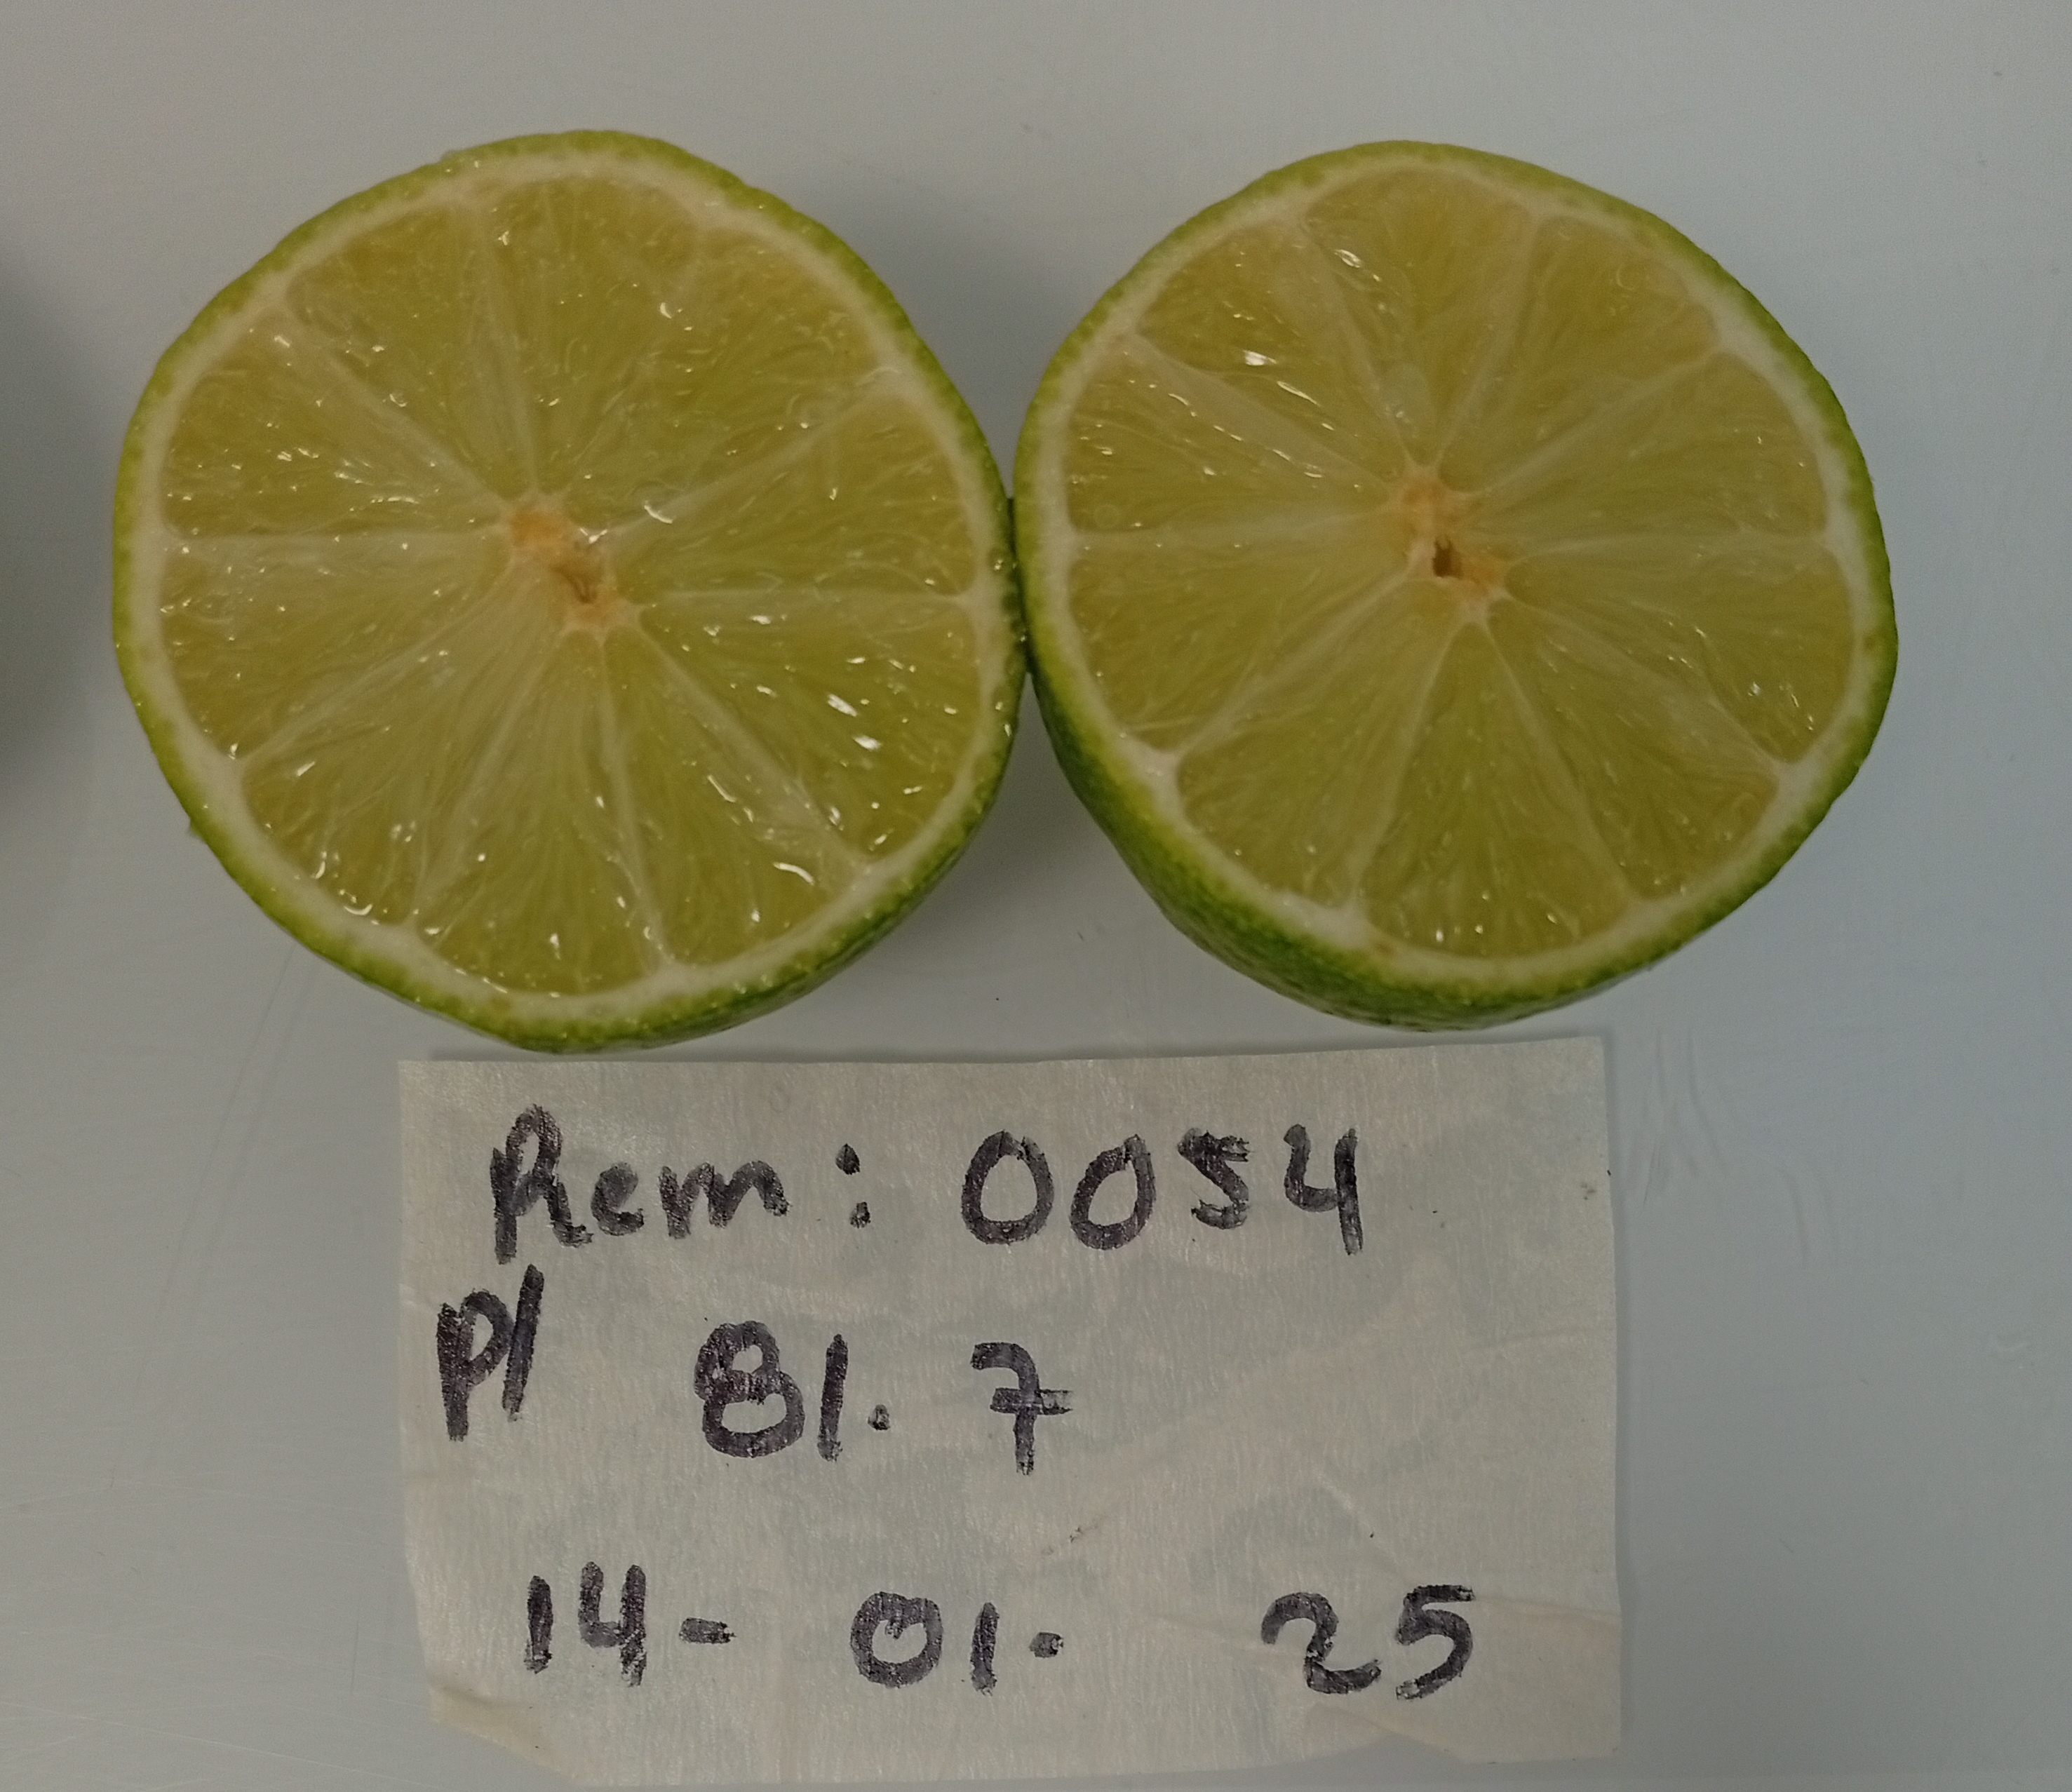 Rem: 0054
Pl 81.7
14-01. 25